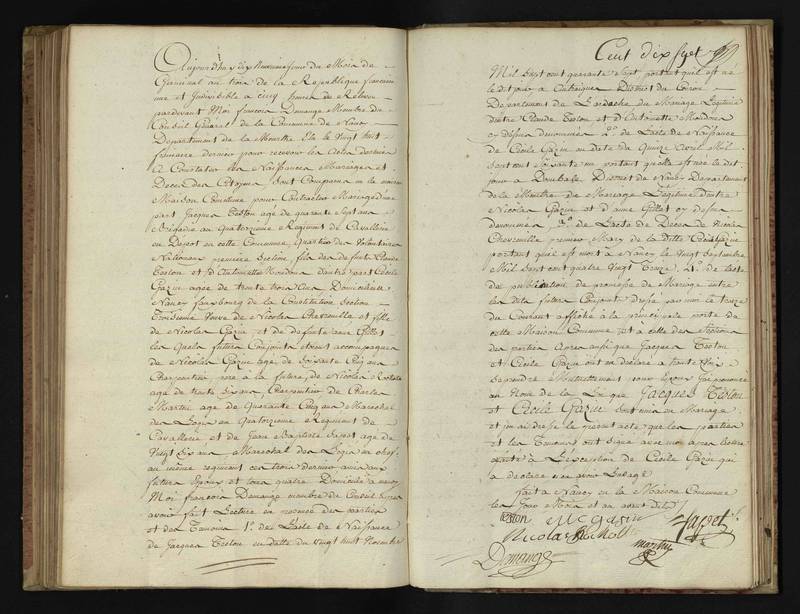 Aujourd'huy dix neuvieme jour du Mois de
Germinal an trois de la Republique francaise
une et Indivisible a cinq heures de Relevée
pardevant Moi francois Domange Membre du
Conseil Général de la Commune de Nancy
Departement de la Meurthe Elu le vingt huit
frimaire dernier pour recevoir les Actes destinés
a Constater les Naissances Mariages et
Decès des Citoyens, sont Comparus en la
Maison Commune pour Contracter Mariage d'une
part Jacques Teston agé de quarante Sept ans
Brigadier au Quatorzieme Regiment de Cavallerie
en Depot en cette Commune, Quartier des Volontaires
Nationaux premiere Section, fils des defunts Claude
Teston et d'Antoinette Moudon d'autre part Cécile
Gazin agée de trente trois ans Domiciliée a
Nancy faubourg de la Constitution Section
Troisieme veuve de Nicolas Chevreille et fille
de Nicolas Gazin et de defunte anne Gillet
les Quels futurs Conjoints etoient accompagnés
de Nicolas Gazin agé de soixante Cinq ans
Charpentier pere à la future, de Nicolas
agé de trente six ans, Charpentier de Charles
Martin agé de Quarante Cinq ans Marechal
des Logis au Quatorzieme Regiment de
Cavallerie et de Jean Baptiste Japet agé de
vingt six ans Marechal des Logis en chef
au même regiment ces trois derniers amis aux
futurs Epoux et tous quatre Domiciliés a Nancy
Moi francois Domange membre du Conseil
avoir fait Lecture en presence des parties
et des Temoins 1º de l'acte de Naissance
de Jacques Teston en datte du vingt huit Novembre
Cent dix sept
Mil Sept cent quarante Sept portant qu'il est né
le dit jour a Antraigues District du Coiron
Departement de L'ardeche du Mariage Legitime
d'entre Claude Teston et d'Antoinette Moudon
cy dessus denommés 2º de l'acte de Naissance
de Cecile Gazin en date du Quinze avril Mil
Sept cent soixante un portant qu'elle est née le dit
jour a Dombasle District de Nancy Departement
de la Meurthe de Mariage Légitime d'entre
Nicolas Gazin et d'anne Gillet cy dessus
denommés, 3º de l'acte de Deces de Nicolas
Chevreille premier Mary de la ditte Cecile Gazin
portant qu'il est mort a Nancy le vingt Septembre
Mil Sept cent quatre vingt Treize, 4º de l'acte
de publication de promesse de Mariage entre
les dits futurs Conjoints dressé par moi le treize
du Courant affiché a la principale porte de
cette Maison Commune et a celle des sections
des parties apres aussi que Jacques Teston
et Cecile Gazin ont eu declaré a haute voix
se prendre Mutuellement pour Epoux J'ai prononcé
au Nom de la Loi que Jacques Teston
et Cécile Gazin sont unis en Mariage
et j'en ai dressé le present acte que les parties
et les Temoins ont signé avec moi apres lecture
faite à L'exception de Cecile Gazin qui
a declaré n'en avoir L'usage
fait a Nancy en la Maison Commune
les Jour Mois et an avant dits
teston
N Gasin
Japet
Nicolas
martin
Domange